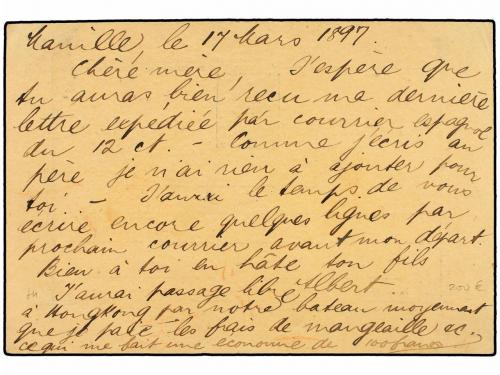 Manille, le 17 Mars 1897.
Chère mère, J'espère que
tu auras bien reçu ma dernière
lettre expédiée par courrier espagnol
du 12 ct. - Comme j'écris au
père je n'ai rien à ajouter pour
toi. - J'aurai le temps de vous
écrire encore quelques lignes par
prochain courrier avant mon départ.
Bien à toi en hâte ton fils
Albert.
J'aurai passage libre
à Hongkong par notre bateau moyennant
que je paie les frais de mangeaille ec.
ce qui me fait une économie de 100 francs
200 €